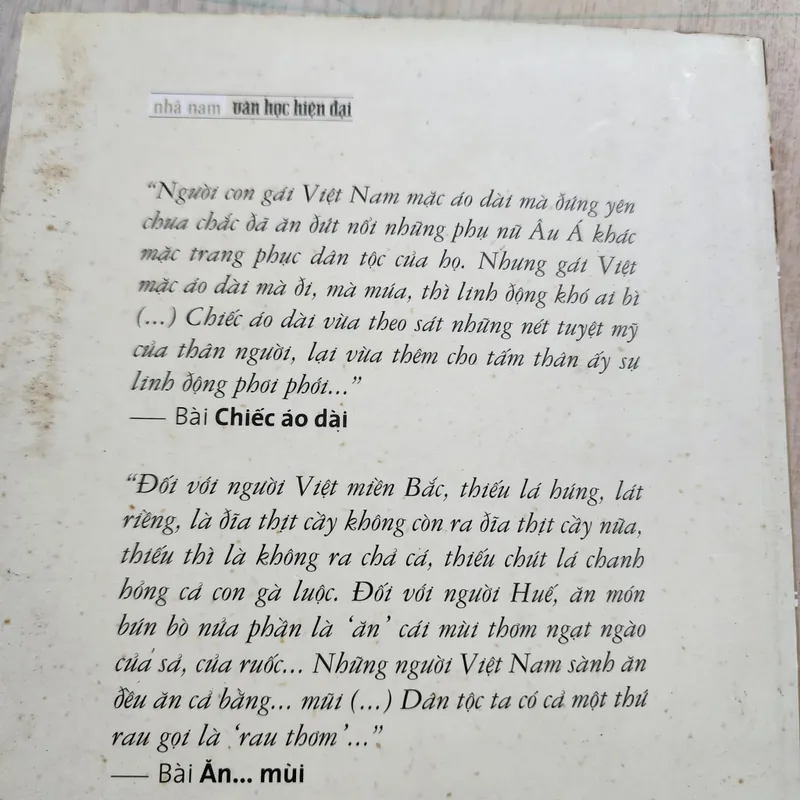 nhã nam văn học hiện đại
“Người con gái Việt Nam mặc áo dài mà đứng yên
chưa chắc đã ăn đứt nổi những phụ nữ Âu Á khác
mặc trang phục dân tộc của họ. Nhưng gái Việt
mặc áo dài mà đi, mà múa, thì linh động khó ai bì
(...) Chiếc áo dài vừa theo sát những nét tuyệt mỹ
của thân người, lại vừa thêm cho tấm thân ấy sự
linh động phơi phới...”
— Bài Chiếc áo dài
“Đối với người Việt miền Bắc, thiếu lá húng, lát
riềng, là đĩa thịt cầy không còn ra đĩa thịt cầy nữa,
thiếu thì là không ra chả cá, thiếu chút lá chanh
hỏng cả con gà luộc. Đối với người Huế, ăn món
bún bò nửa phần là ‘ăn’ cái mùi thơm ngạt ngào
của sả, của ruốc... Những người Việt Nam sành ăn
đều ăn cả bằng... mũi (...) Dân tộc ta có cả một thứ
rau gọi là ‘rau thơm’...”
— Bài Ăn... mùi